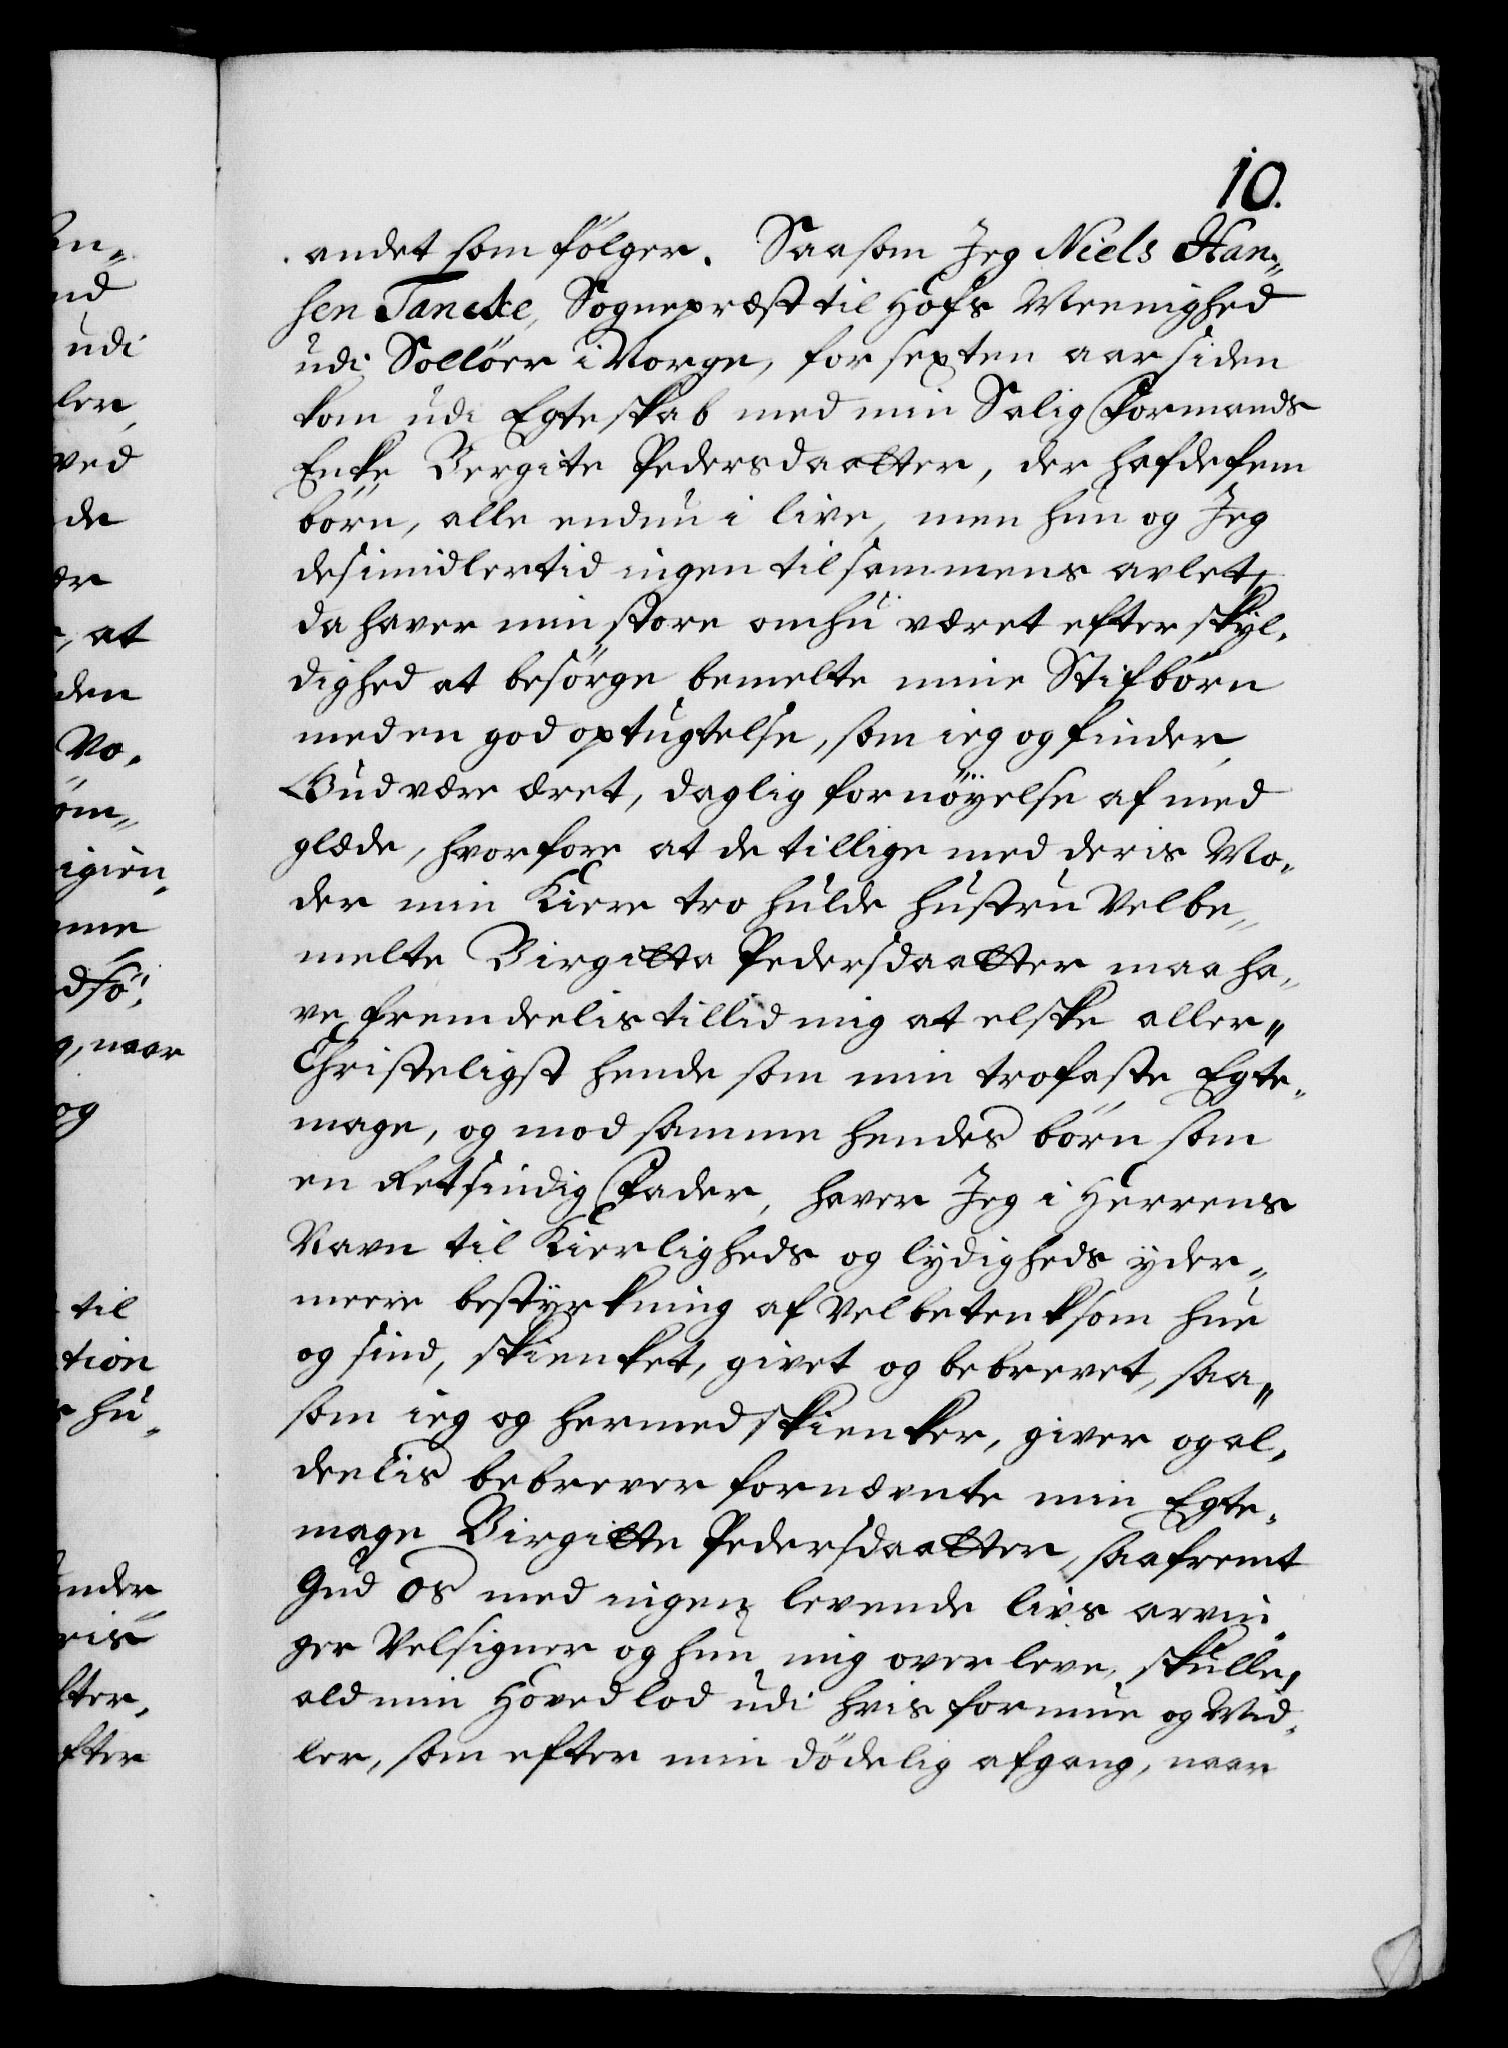 10.
andet som følger. Saasom Jeg Niels Han„
sen Tancke, Sognepræst til Hofs Meenighed
udi Sollöer i Norge, for sexten aar siden
kom udi Egteskab med min Salig Formands
Enke Bergite Pedersdaatter, der hafde fem
börn, alle endnu i live, men hun og Jeg
desimidlertid ingen tilsammens avlet,
da haver min store omhu været efter skyl„
dighed at besörge bemelte mine Stifbörn
med en god optugtelse, som ieg og finder,
Gud være æret, daglig fornöyelse af med
glæde, hvorfore at de tillige med deris Mo„
der min Kiere tro hulde hustru Velbe„
melte Birgitta Pedersdaatter maa ha„
ve fremdeelis tillid mig at elske aller„
Christeligst hende som min trofaste Egte„
mage, og mod samme hendes börn som
en Retsindig Fader, haver Jeg i Herrens
Navn til Kierligheds og lydigheds yder„
meere bestyrkning af Velbetenksom hue
og sind, skienket, givet og bebrevet, saa„
som ieg og hermed skienker, giver og al„
deelis bebrever fornævnte min Egte„
mage Birgitte Pedersdaatter, saafremt
Gud os med ingen levende livs arvin„
ger Velsigner og hun mig overleve skulle,
ald min Hovedlod udi hvis formue og Mid„
ler, som efter min dödelig afgang, naar